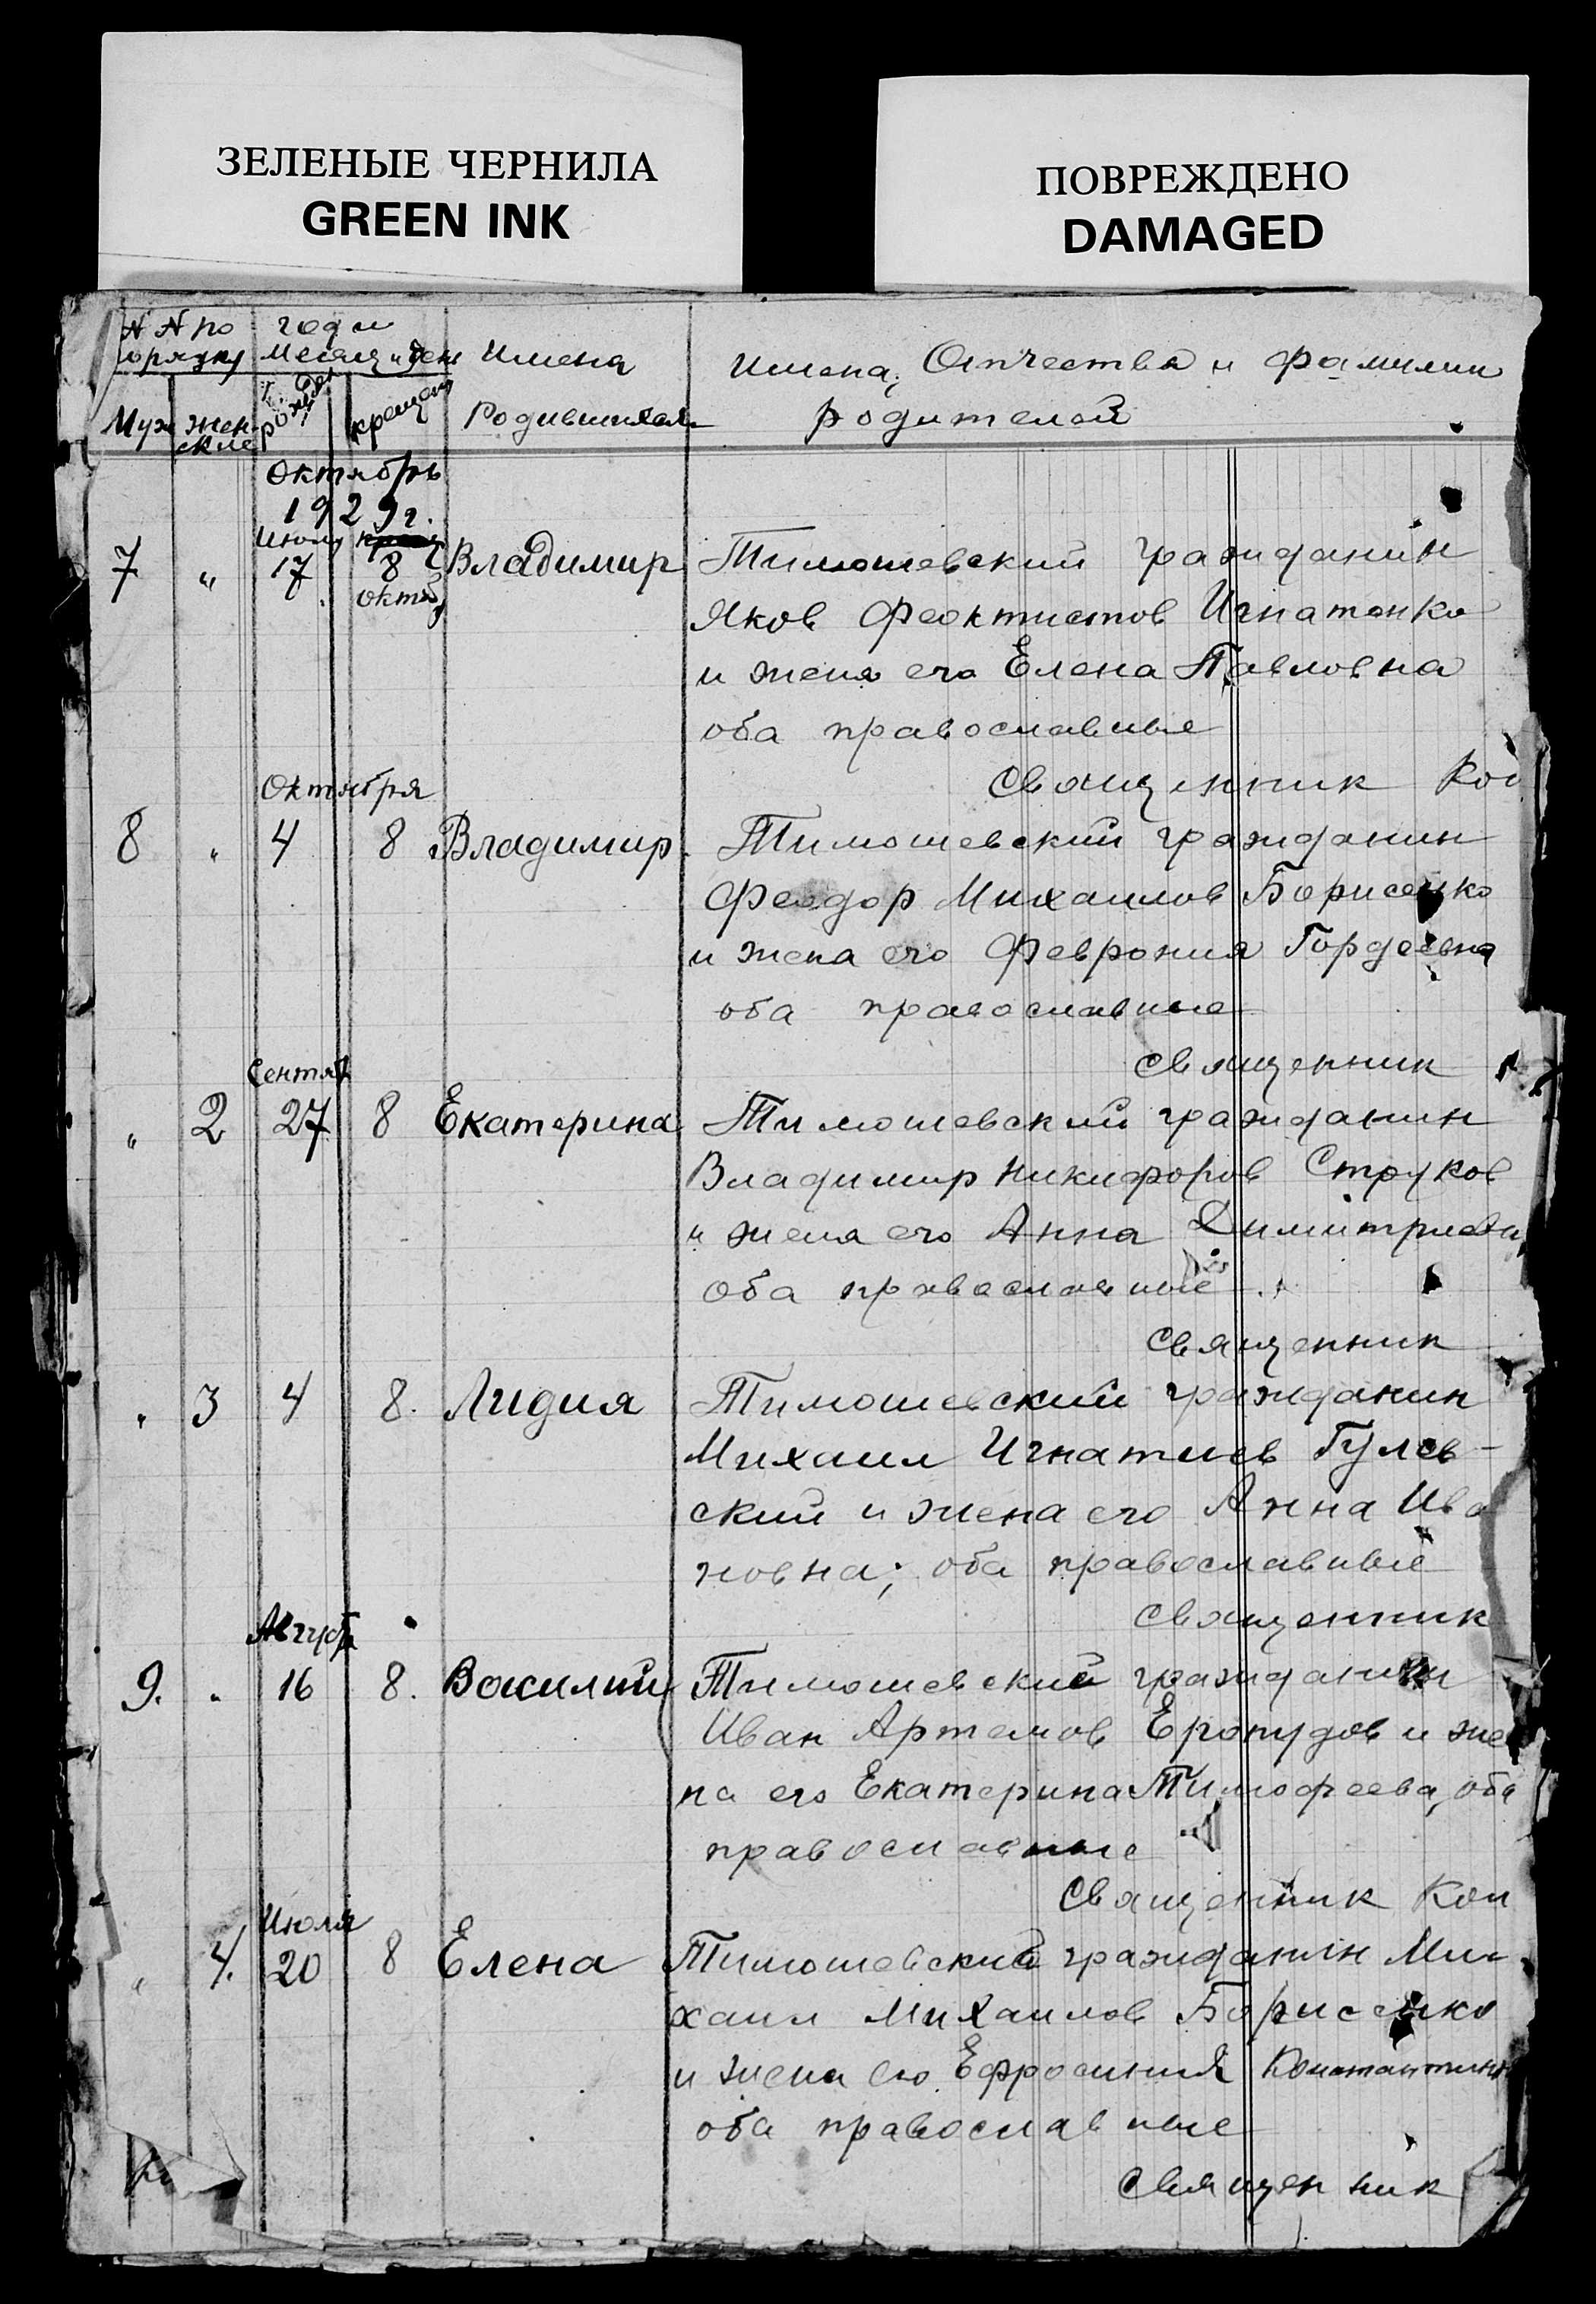 ЗЕЛЕНЫЕ ЧЕРНИЛА
GREEN INK
ПОВРЕЖДЕНО
DAMAGED
N N по
порядку
год и
Месяц и день
Имена
Родившихся
Имена, Отчества и фамилии
родителей
Муж
Жен-
ские
рожден
крещен
Октябрь
1929г.
Июня
7 " 17 8 Владимир Тимошевский гражданин
октяб
Яков Феоктистов Игнатенко
и жена его Елена Павловна
оба православные
Священник
Октября
8 " 4 8 Владимир. Тимошевский гражданин
Феодор Михаилов Борисенко
и жена его Феврония Гордеевна
оба православные
Священник
Сентяб
" 2 27 8 Екатерина Тимошевский гражданин
Владимир Никифоров Струков
и жена его Анна Димитриевн
оба православные
Священник
" 3 4 8. Лидия Тимошевский гражданин
Михаил Игнатиев Гулев-
ский и жена его Анна Ива
новна; оба православные
Священник
Август
9. " 16 8. Василий Тимошевский гражданин
Иван Артемов Еропудов и же
на его Екатерина Тимофеева, оба
православные
Священник
Июля
" 4. 20 8 Елена Тимошевский гражданин Ми-
хаил Михаилов Борисенко
и жена его Ефросиния Константинов
оба православные
Священник